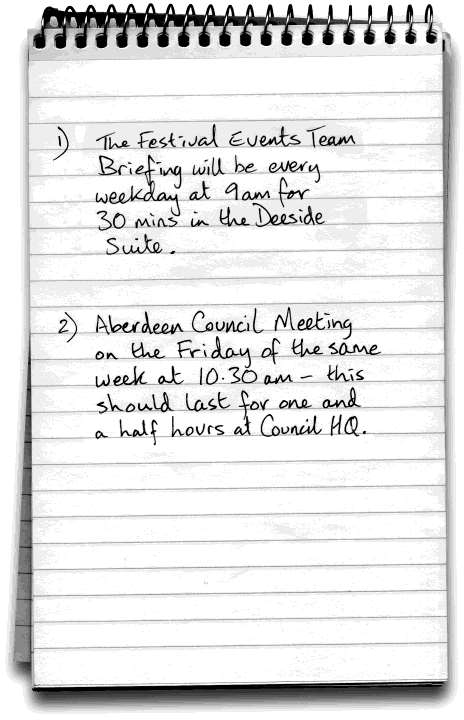 1) The Festival Events Team
Briefing will be every
weekday at 9am for
30 mins in the Deeside
Suite.
2) Aberdeen Council Meeting
on the Friday of the same
week at 10.30 am – this
should last for one and
a half hours at Council HQ.